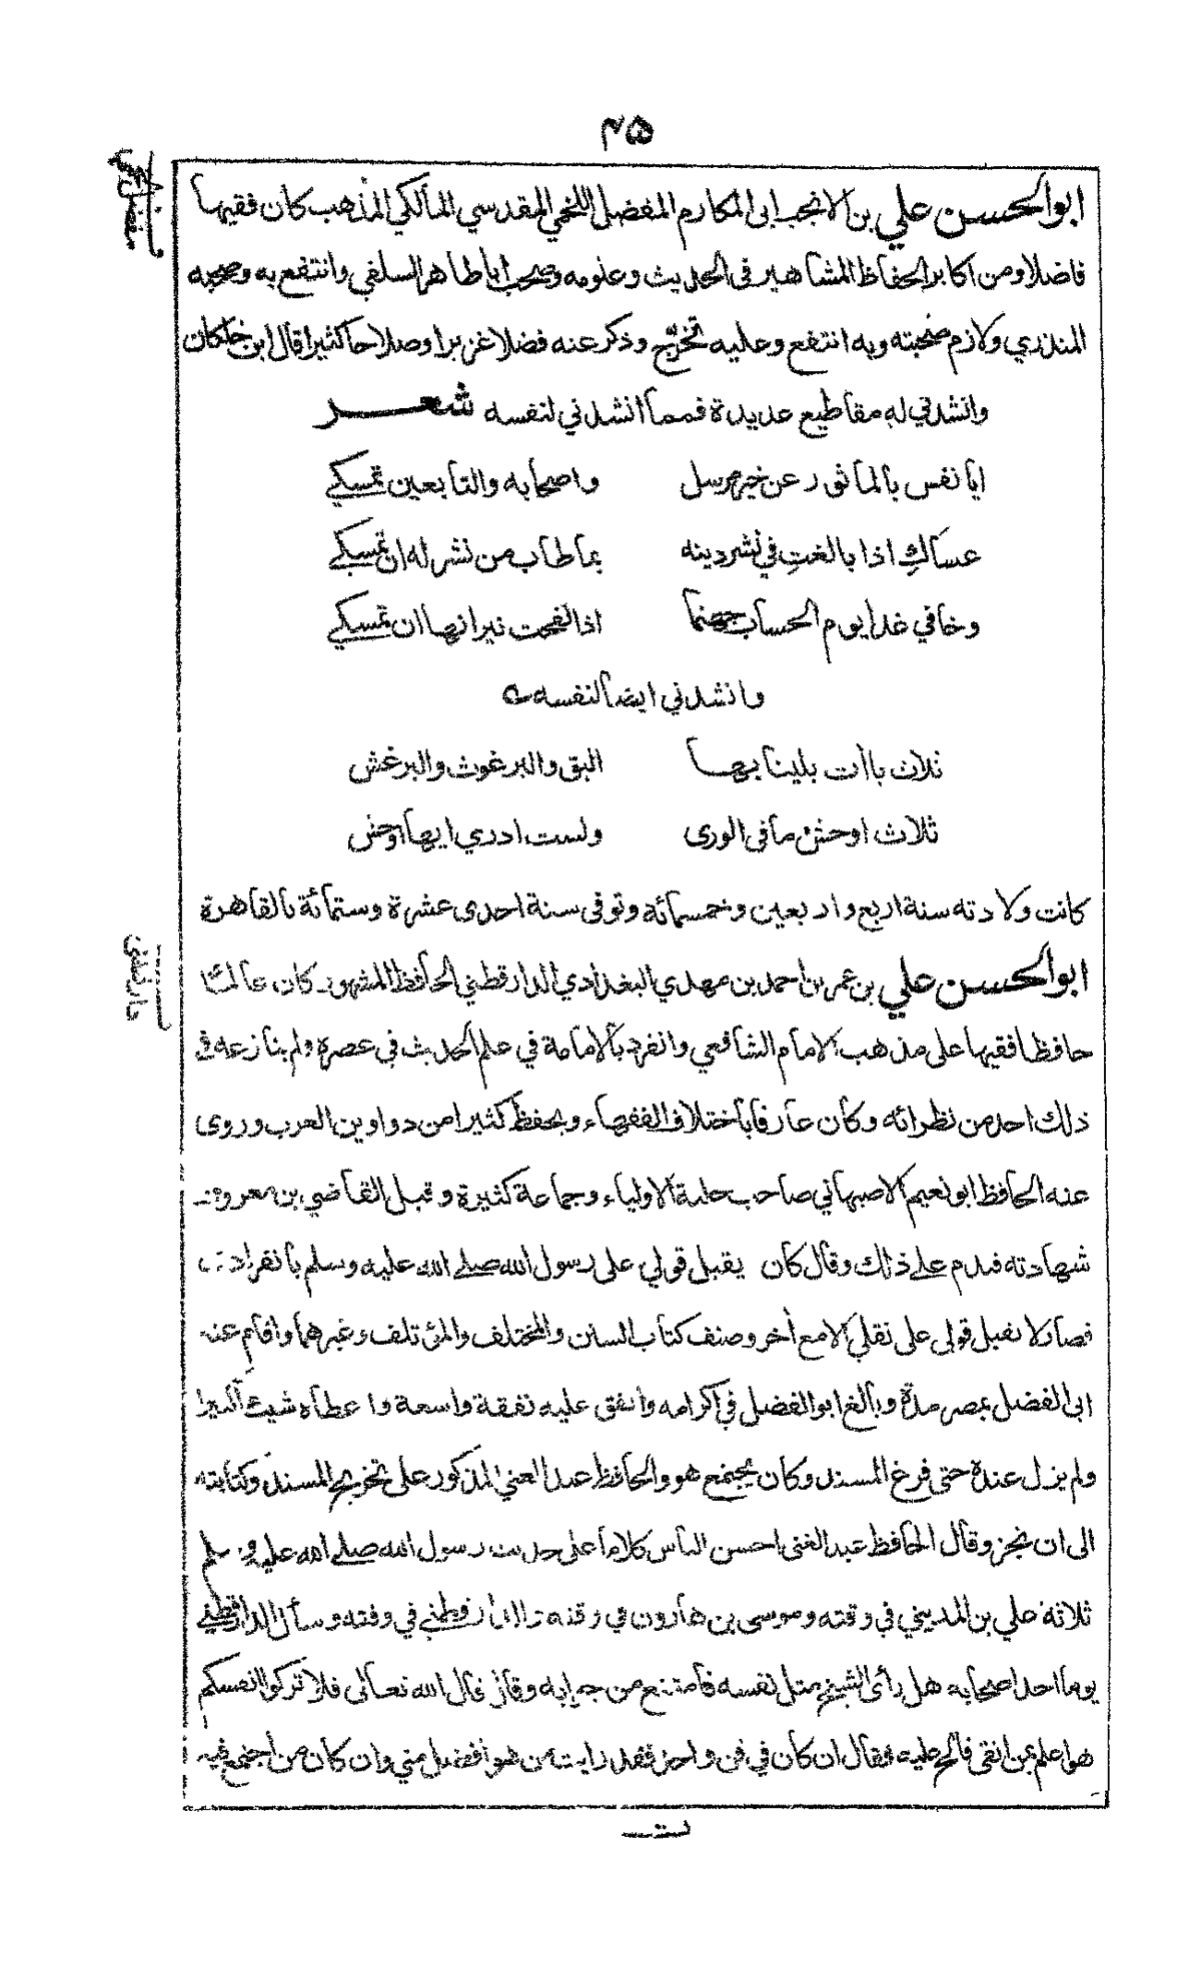 ٤٥
ابوالحسن علي بن الانجب ابى المكارم المفضل اللخمي المقدسي المالكي المذهب كان فقيها
فاضلا ومن اكابر الحفاظ المشاهير فى الحديث وعلومه وصحب اباطاهر السلفي وانتفع به وصحبه
المنذري ولازم صحبته وبه انتفع وعليه تخرج وذكر عنه فضلا غزيرا وصلاحا كثيرا قال ابن خلكان
وانشدني له مقاطيع عديدة فمما انشدني لنفسه شعر
ايا نفس بالماثور عن خير مرسل واصحابه والتابعين تمسكي
عساكِ اذا بالغتِ في نشر دينه بما طاب من نشر له ان تمسكي
وخافي غدا يوم الحساب جهنما اذا لفحت نيرانها ان تمسكي
وانشدني ايضا لنفسه
ثلاث باأت بلينا بها البق والبرغوث والبرغش
ثلاث اوحش مافى الورى ولست ادري ايها اوحش
كانت ولادته سنة اربع واربعين وخمسمائة وتوفى سنة احدى عشرة وستمائة بالقاهرة
ابوالحسن علي بن عمر بن احمد بن مهدي البغدادي الدارقطني الحافظ المشهور كان عالما
حافظا فقيها على مذهب الامام الشافعي وانفرد بالامامة في علم الحديث في عصره ولم ينازعه فى
ذلك احد من نظرائه وكان عارفا باختلاف الفقهاء ويحفظ كثيرا من دواوين العرب وروى
عنه الحافظ ابونعيم الاصبهاني صاحب حلية الاولياء وجماعة كثيرة وقبل القاضي بن معروف
شهادته فندم على ذلك وقال كان يقبل قولي على رسول الله صلى الله عليه وسلم بانفرادى
فصار لا يقبل قولى على نقلي الا مع أخر وصنف كتاب السنن والمختلف والمؤتلف وغيرهما واقام عند
ابى الفضل بمصر مدة وبالغ ابوالفضل في اكرامه وانفق عليه نفقة واسعة واعطاه شيئا كثيرا
ولم يزل عنده حتى فرغ المسند وكان يجتمع هو والحافظ عبدالغني المذكور على تخريج المسند وكتابته
الى ان نجز وقال الحافظ عبدالغنى احسن الناس كلاما على حديث رسول الله صلى الله عليه وسلم
ثلاثة علي بن المديني في وقته وموسى بن هارون في وقته والدارقطني في وقته وسأل الدارقطني
يوما احد اصحابه هل رأى الشيخ مثل نفسه فامتنع من جوابه وقال قال الله تعالى فلا تزكوا انفسكم
هو اعلم بمن اتقى فالح عليه فقال ان كان في فن واحد فقد رايت من هو افضل مني وان كان من اجتمع فيه
دارقطنى